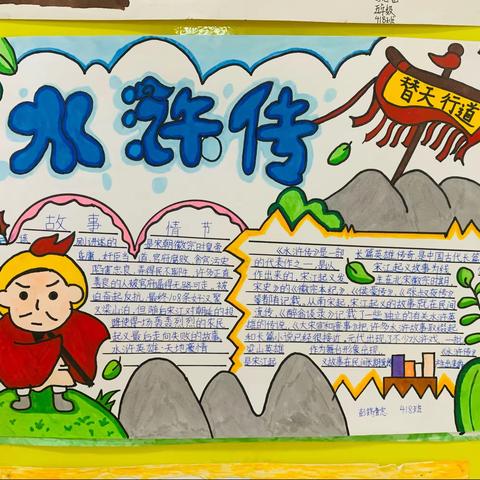 五年级
418班
水浒传
替天行道
故事情节
是宋朝徽宗时皇帝
昏庸、奸臣当道、官府腐败、贪官污吏
陷害忠良,弄得民不聊生,许多正直
善良的人被官府逼得无路可走,被
迫奋起反抗,最终108条好汉聚
义梁山泊,但随后宋江对朝廷的投
降使得一场轰轰烈烈的农民
起义最后走向失败的故事。
水浒英雄,天地豪情
《水浒传》是一部长篇英雄传奇,是中国古代长篇
的代表作之一,是以宋江起义故事为线
作出来的,宋江起义发生在北宋徽宗时期,
宋史》的《徽宗本纪》《侯蒙传》《张叔夜传》
等都有记载,从南宋起,宋江起义的故事就在民间
流传,《醉翁谈录》记载了一些独立的有关水浒英
雄的传说,《大宋宣和遗事》把许多水浒故事联缀起
和长篇小说已经很接近,元代出现了不少水浒戏,一批
梁山英雄作为舞台形象出现,《水浒传》
是宋江起义故事在民间长期流传
418班